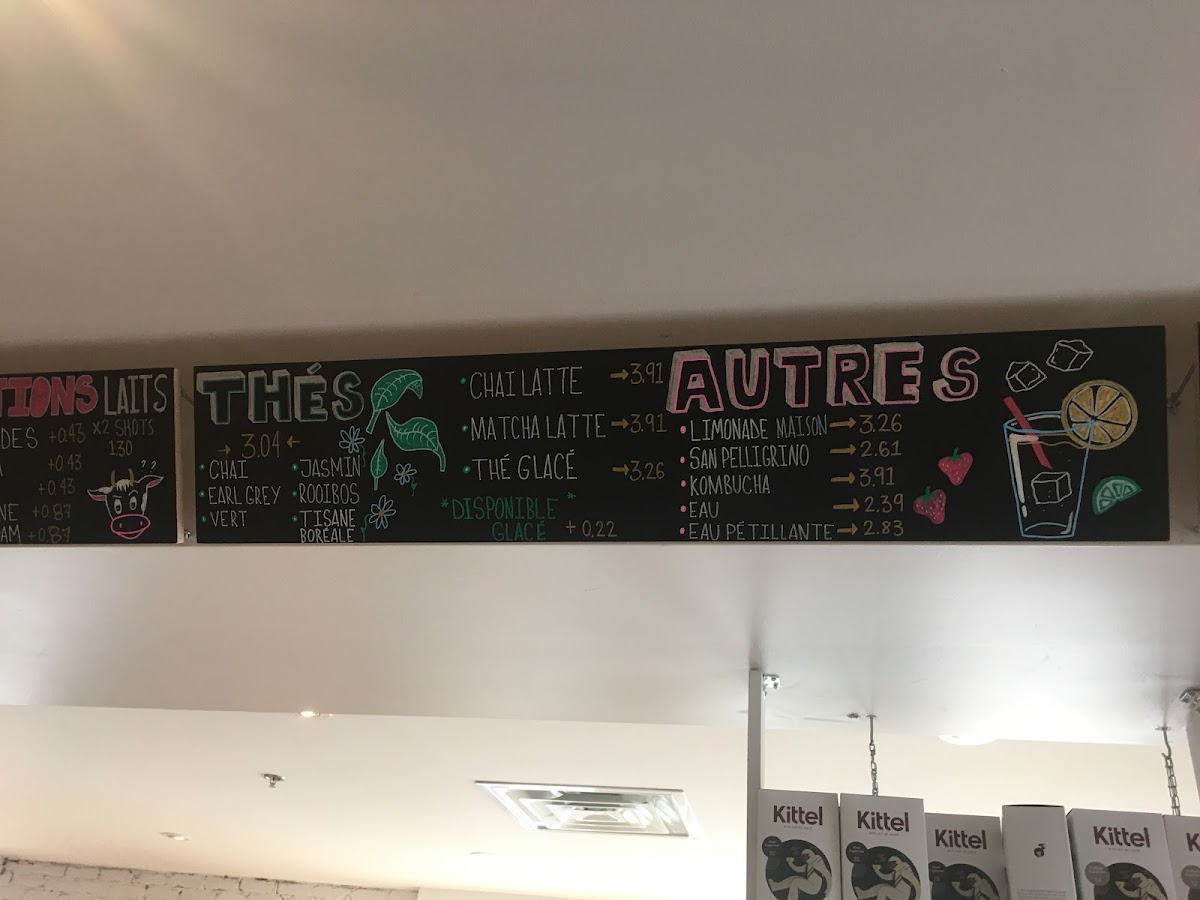 TIONS LAITS
DES +0.43 X2 SHOTS
1.30
+0.43
+0.43
NE +0.87
AM +0.87
? ?
THÉS
→ 3.04 ←
• CHAI
• EARL GREY
• VERT
• JASMIN
• ROOIBOS
• TISANE
BORÉALE
• CHAI LATTE → 3.91
• MATCHA LATTE → 3.91
• THÉ GLACÉ → 3.26
*DISPONIBLE *
GLACÉ + 0.22
AUTRES
• LIMONADE MAISON → 3.26
• SAN PELLIGRINO → 2.61
• KOMBUCHA → 3.91
• EAU → 2.39
• EAU PÉTILLANTE → 2.83
Kittel
Kittel
Kittel
Kittel
K